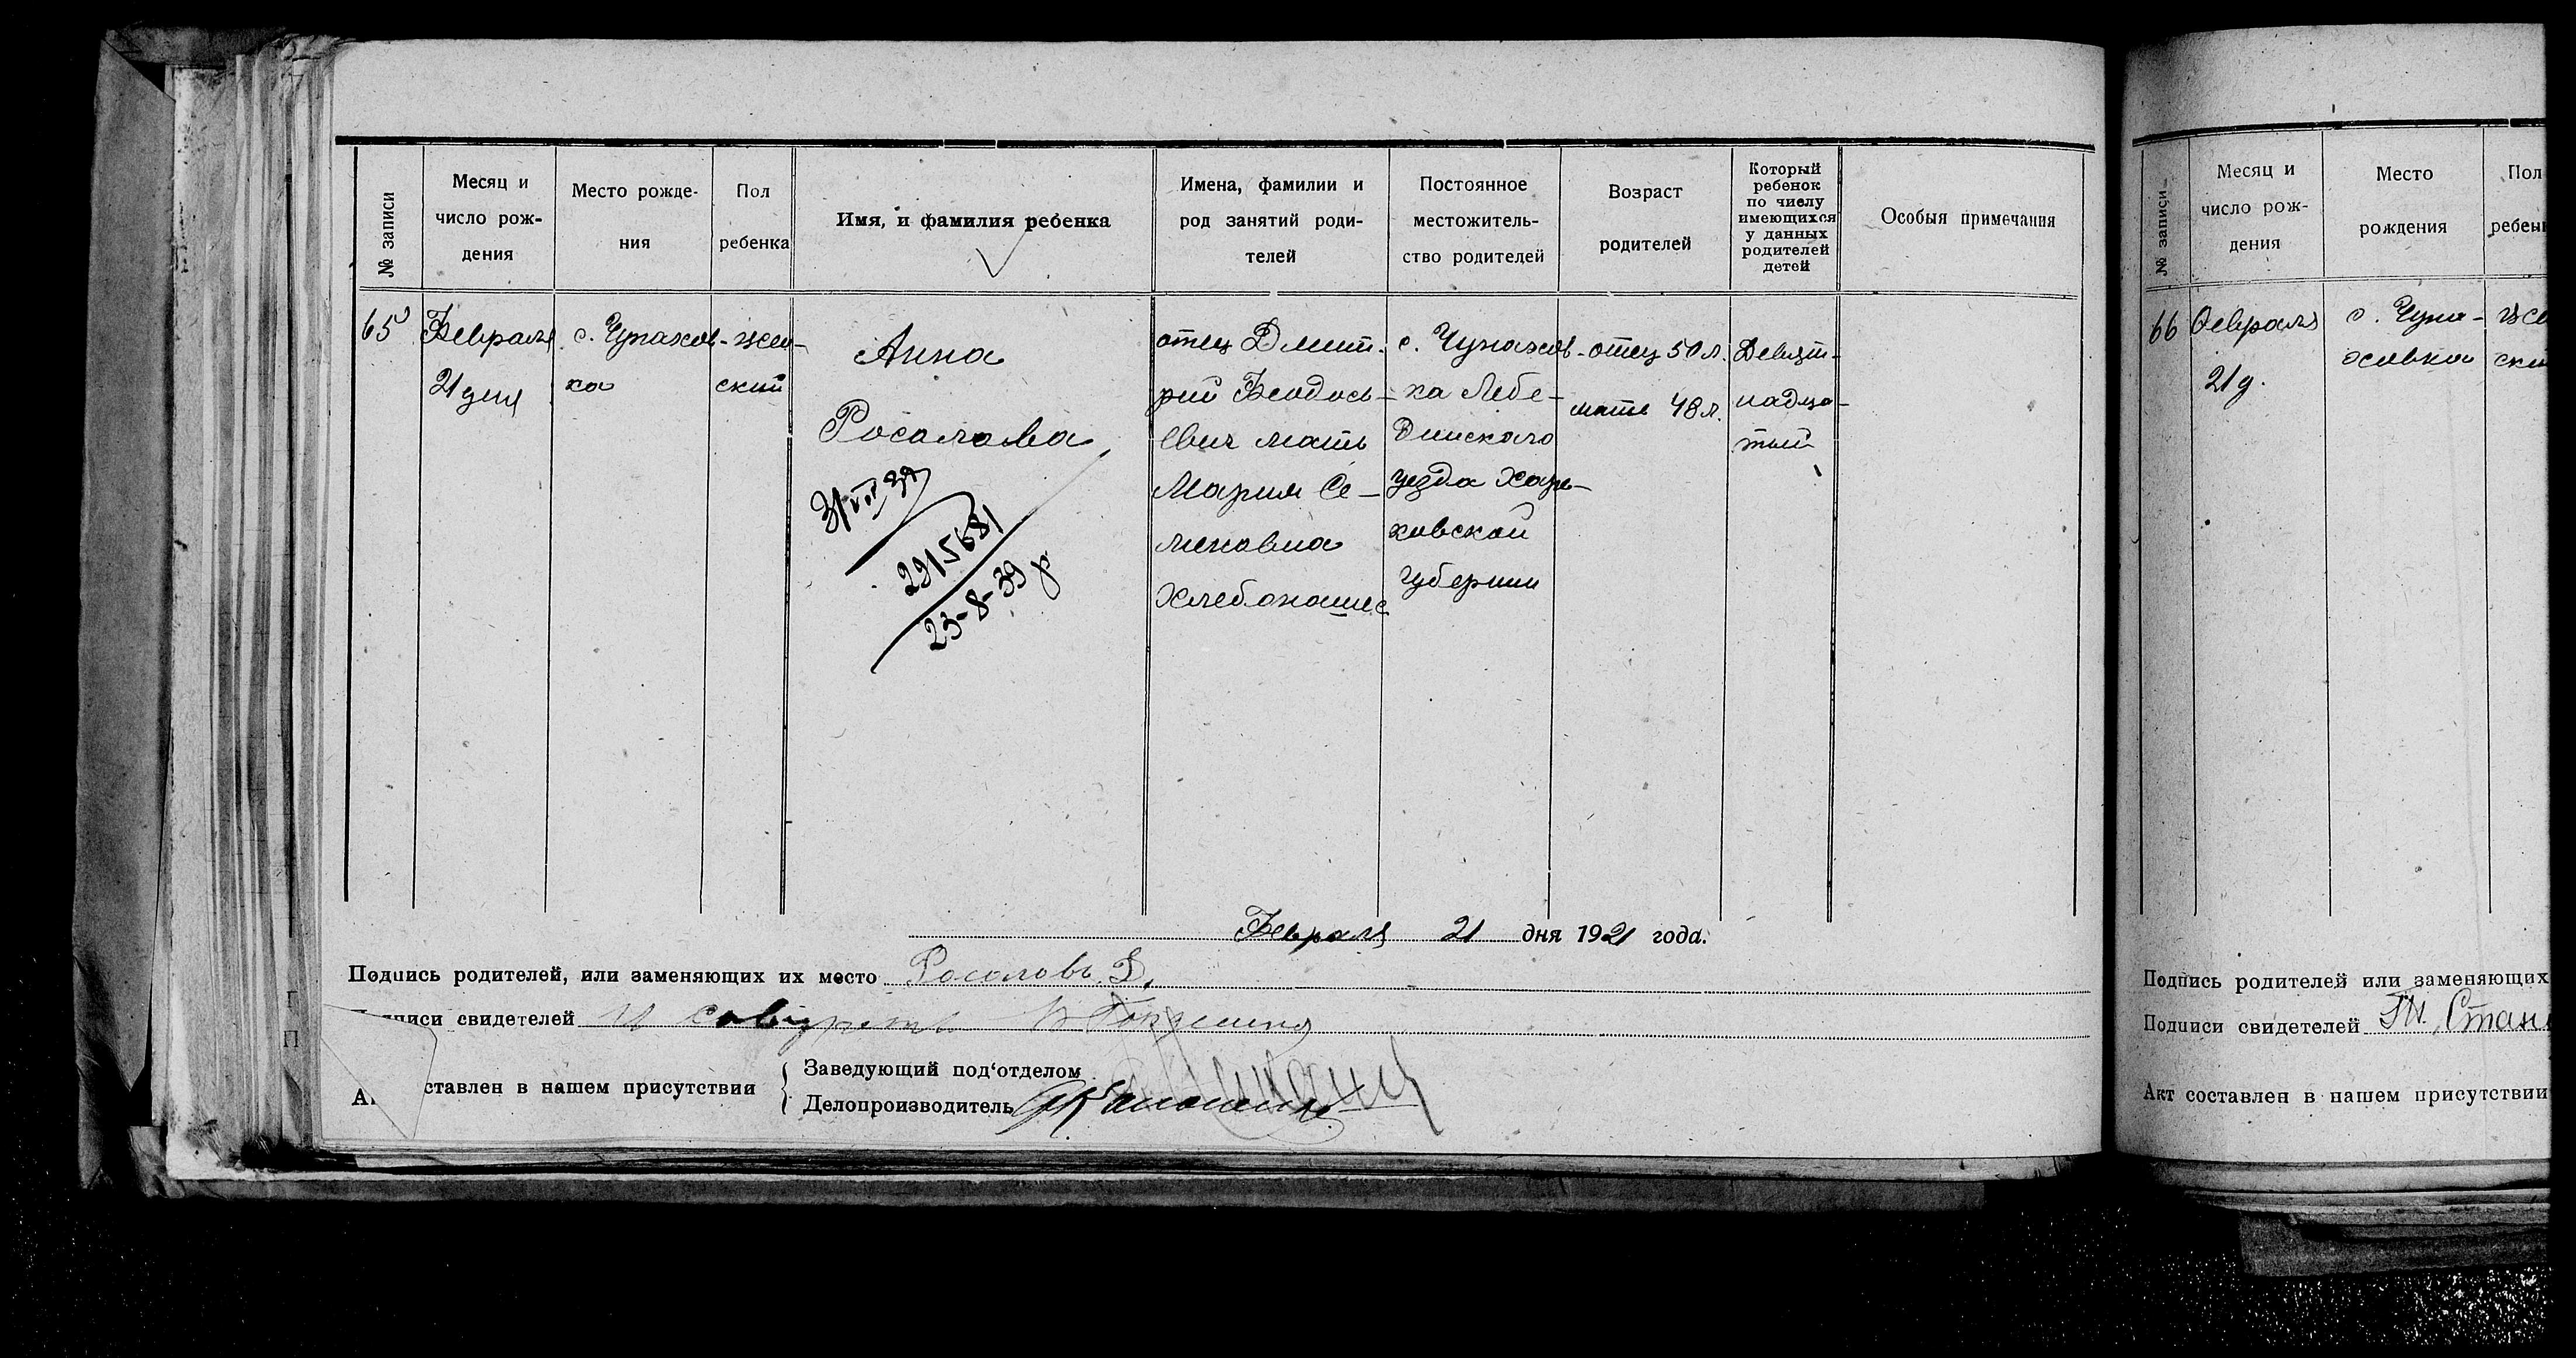 № записи
Месяц и число рож-дения
Место рожде-ния
Пол ребенка
Имя, и фамилия ребенка
Имена, фамилии и род занятий роди-телей
Постоянное местожитель-ство родителей
Возраст родителей
Который ребенок по числу имеющихся у данных родителей детей
Особыя примечания
65
Февраля
21 дня
с. Чупахов-
ка
жен-
ский
Анна
Росалова
2915681
23-8-39
отец Дмит-
рий Феодось-
евич мать
Мария Се-
меновна
Хлебопашес
с. Чупахов-
ка Лебе-
динского
уезда Харь-
ковской
губернии
отец 50 л.
мать 48 л.
Девят-
надца-
тый
Февраля 21 дня 1921 года.
Подпись родителей, или заменяющих их место Росаловъ Д.
писи свидетелей
ставлен в нашем присутствии
Заведующий под'отделом
Делопроизводитель
№ записи
Месяц и число рож-дения
Место рождения
Пол ребен
66
Февраля
21 д.
с. Чупа-
ховка
же
ски
Подпись родителей или заменяющих
Подписи свидетелей
Акт составлен в нашем присутствии